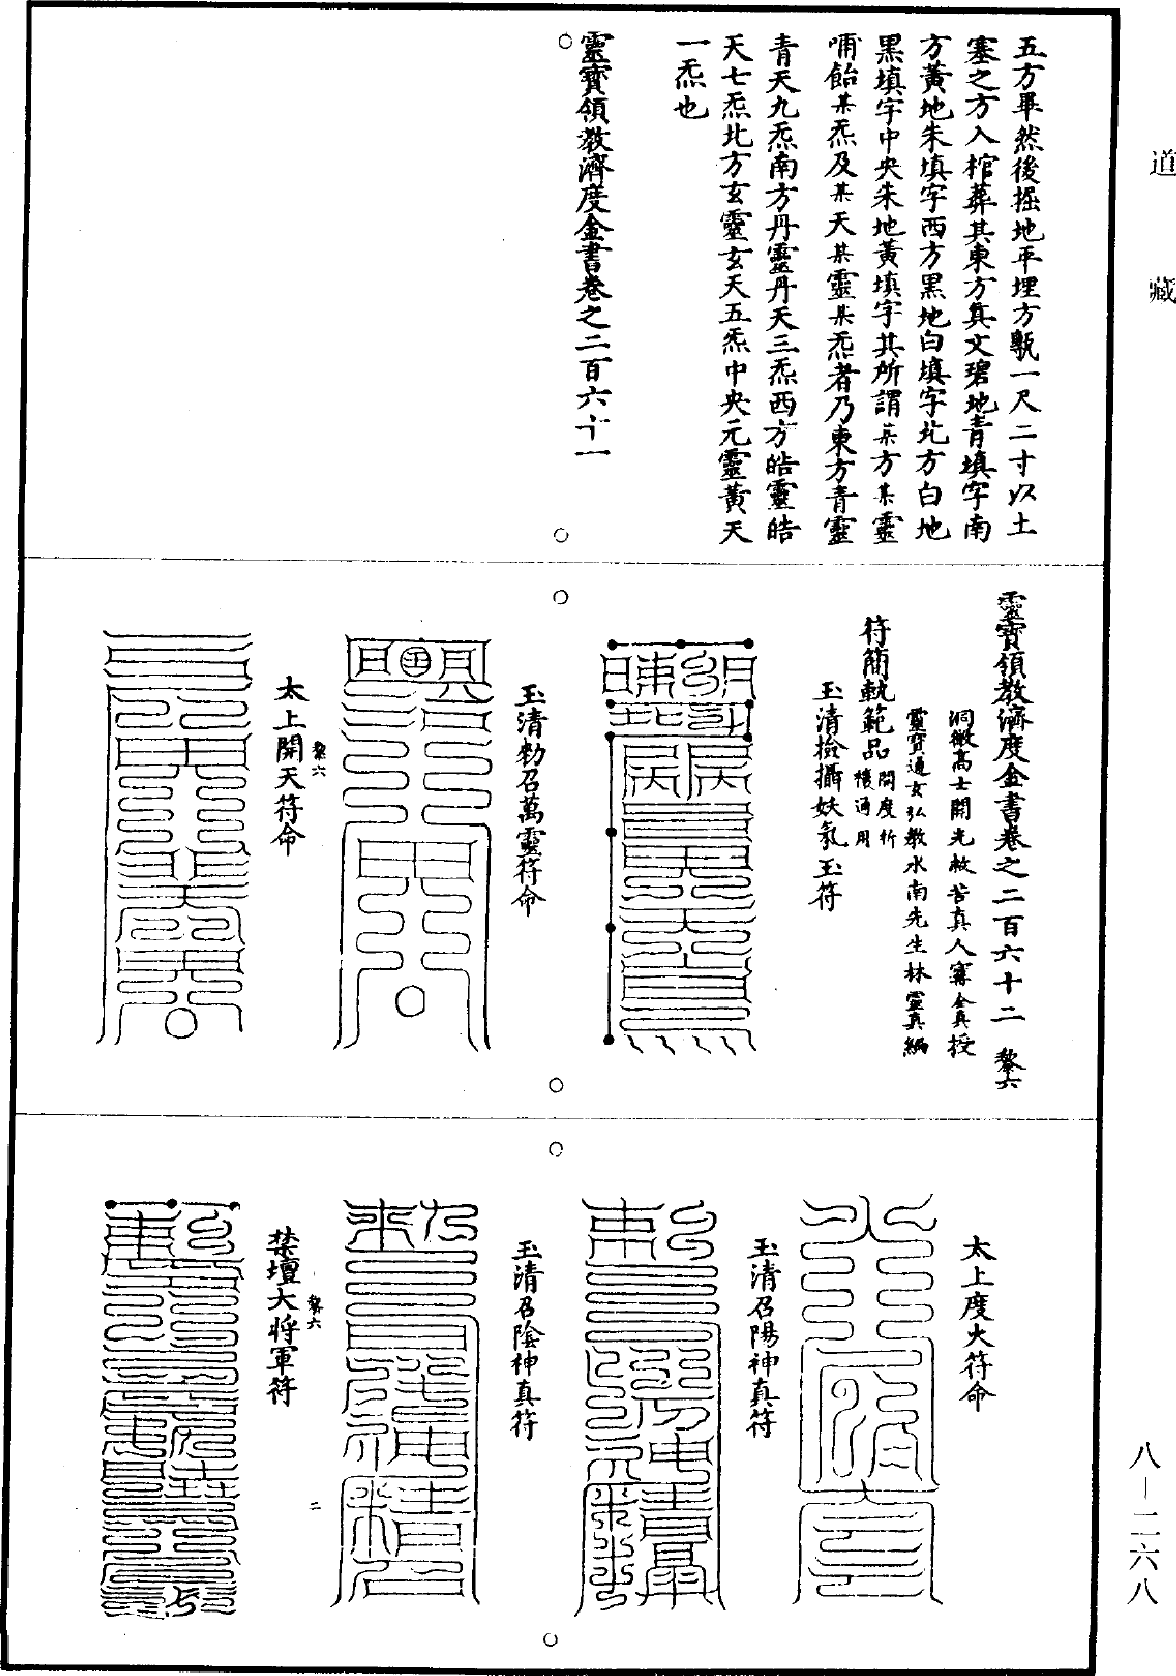 道藏
五方畢然後掘地平埋方甎一尺二寸以土
塞之方入棺葬其東方真文碧地青填字南
方黃地朱填字西方黑地白填字北方白地
黑填字中央朱地黃填字其所謂某方某靈
哺飴某炁及某天某靈某炁者乃東方青靈
青天九炁南方丹靈丹天三炁西方皓靈皓
天七炁北方玄靈玄天五炁中央元靈黃天
一炁也
靈寶領教濟度金書卷之二百六十一
靈寶領教濟度金書卷之二百六十二 䥯六
洞微高士開光救苦真人甯全真授
靈寶通玄弘教水南先生林靈真編
符簡軌範品 開度祈禳通用
玉清撿攝妖氣玉符
玉清勑召萬靈符命
太上開天符命
太上度火符命
玉清召陽神真符
玉清召陰神真符
禁壇大將軍符
二
八—二六八